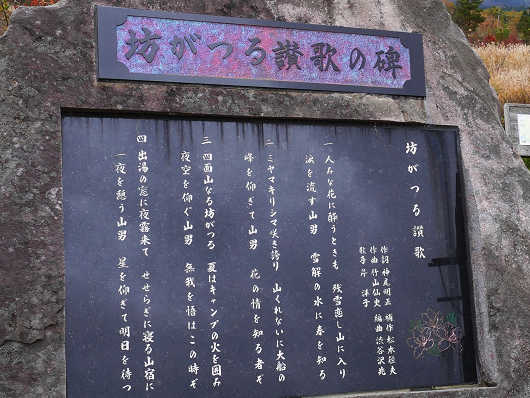 坊がつる讃歌の碑
坊がつる讃歌
作詞 神尾明正 補作 松本征夫
作曲 竹山仙史 編曲 渋谷沢兆
歌手 芹 洋子
一 人みな花に酔うときも 残雪恋し山に入り
涙を流す山男 雪解の水に春を知る
二 ミヤマキリシマ咲き誇り 山くれないに大船の
峰を仰ぎて山男 花の情を知る者ぞ
三 四面山なる坊がつる 夏はキャンプの火を囲み
夜空を仰ぐ山男 無我を悟はこの時ぞ
四 出湯の窓に夜霧来て せせらぎに寝る山宿に
一夜を憩う山男 星を仰ぎて明日を待つ